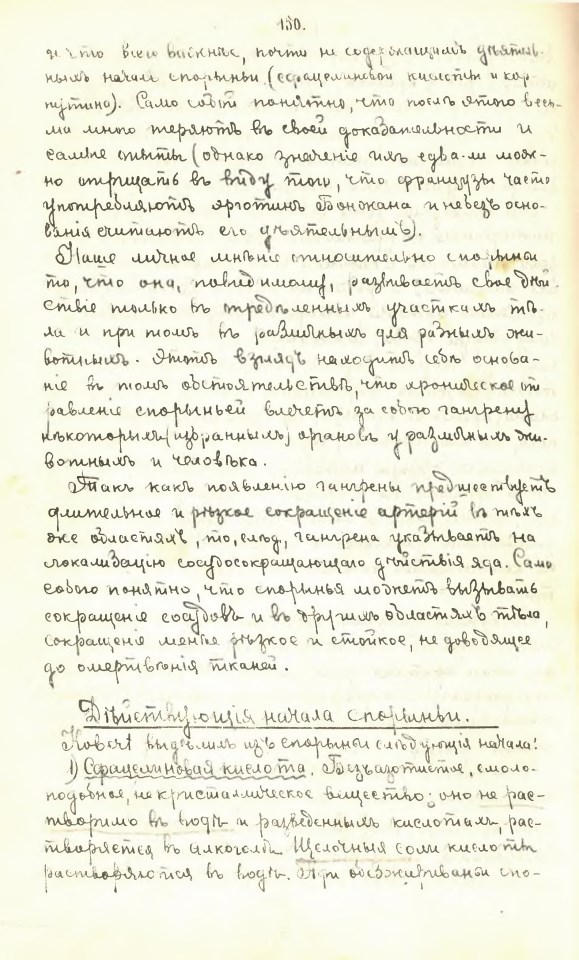 150.
и что всего важнѣе, почти не содержащимъ дѣятель-
ныхъ началъ спорыньи (сфацелиновой кислоты и кор-
нутина). Само собой понятно, что послѣ этого весь-
ма много теряютъ въ своей доказательности и
самые опыты (однако значеніе ихъ едва-ли мож-
но отрицать въ виду того, что французы часто
употребляютъ эрготинъ Бонжана и небезъ осно-
ванія считаютъ его дѣятельнымъ).
Наше личное мнѣніе относительно спорыньи
то, что она, повидимому, развиваетъ свое дѣй-
ствіе только въ опредѣленныхъ участкахъ тѣ-
ла и при томъ въ различныхъ для разныхъ жи-
вотныхъ. Этотъ взглядъ находитъ себѣ основа-
ніе въ томъ обстоятельствѣ, что хроническое от
равленіе спорыньей влечетъ за собою гангрену
нѣкоторыхъ (избранныхъ) органовъ у различныхъ жи-
вотныхъ и человѣка.
Такъ какъ появленію гангрены предшествуетъ
длительное и рѣзкое сокращеніе артерій въ тѣхъ
же областяхъ, то, слѣд., гангрена указываетъ на
локализацію сосудосокращающаго дѣйствія яда. Само
собою понятно, что спорынья можетъ вызывать
сокращеніе сосудовъ и въ другихъ областяхъ тѣла,
сокращеніе менѣе рѣзкое и стойкое, не доводящее
до омертвѣнія тканей.
Дѣйствующія начала спорыньи.
Kobert выдѣлилъ изъ спорыньи слѣдующія начала:
1) Сфацелиновая кислота. Безъазотистое, смоло-
подобное, не кристаллическое вещество; оно не рас-
творимо въ водѣ и разведенныхъ кислотахъ, рас-
творяется въ алкоголѣ. Щелочныя соли кислоты
растворяются въ водѣ. При обезжириваніи спо-